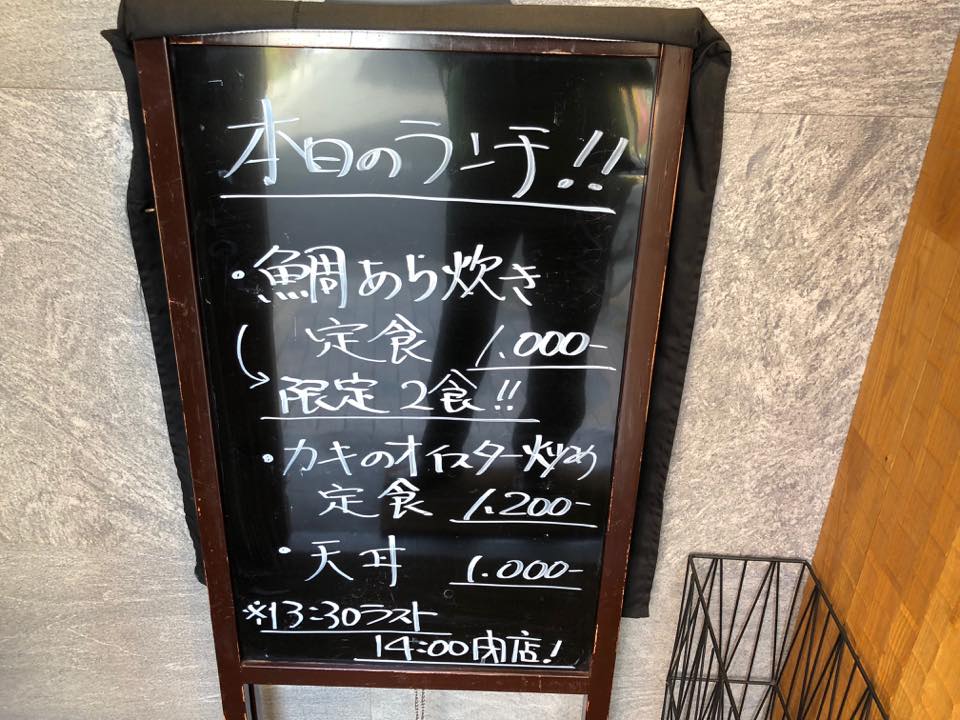 本日のランチ!!
・鯛あら炊き
定食 1.000-
限定2食!!
・カキのオイスター炒め
定食 1.200-
・天丼 1.000-
※13:30ラスト
14:00閉店!